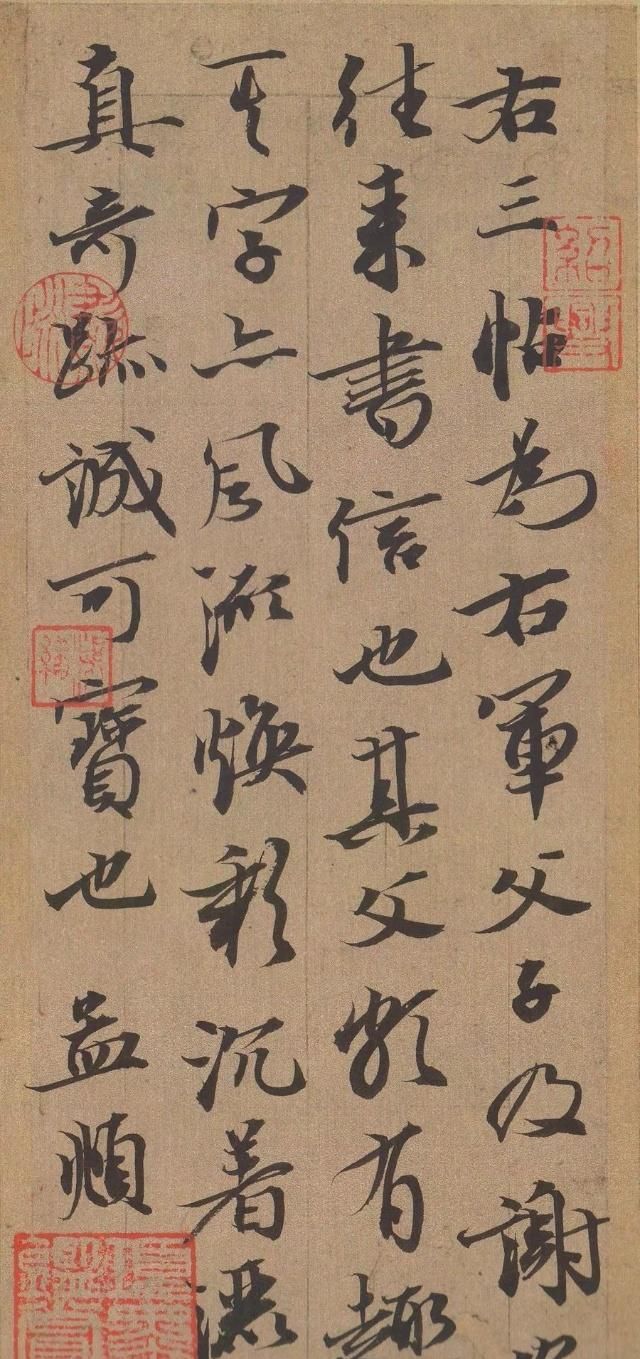 右三帖為右軍父子及謝
往来書信也其文頗有趣
其字亦風流煥彩沉着灑
真奇跡誠可寶也 孟頫
紹興